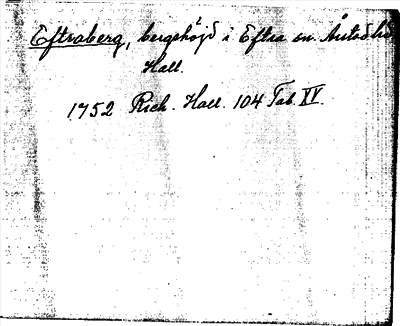 Eftraberg, bergshöjd i Eftra sn. Årstad hd
Hall.
1752 Rich. Hall. 104 Tab. XV.